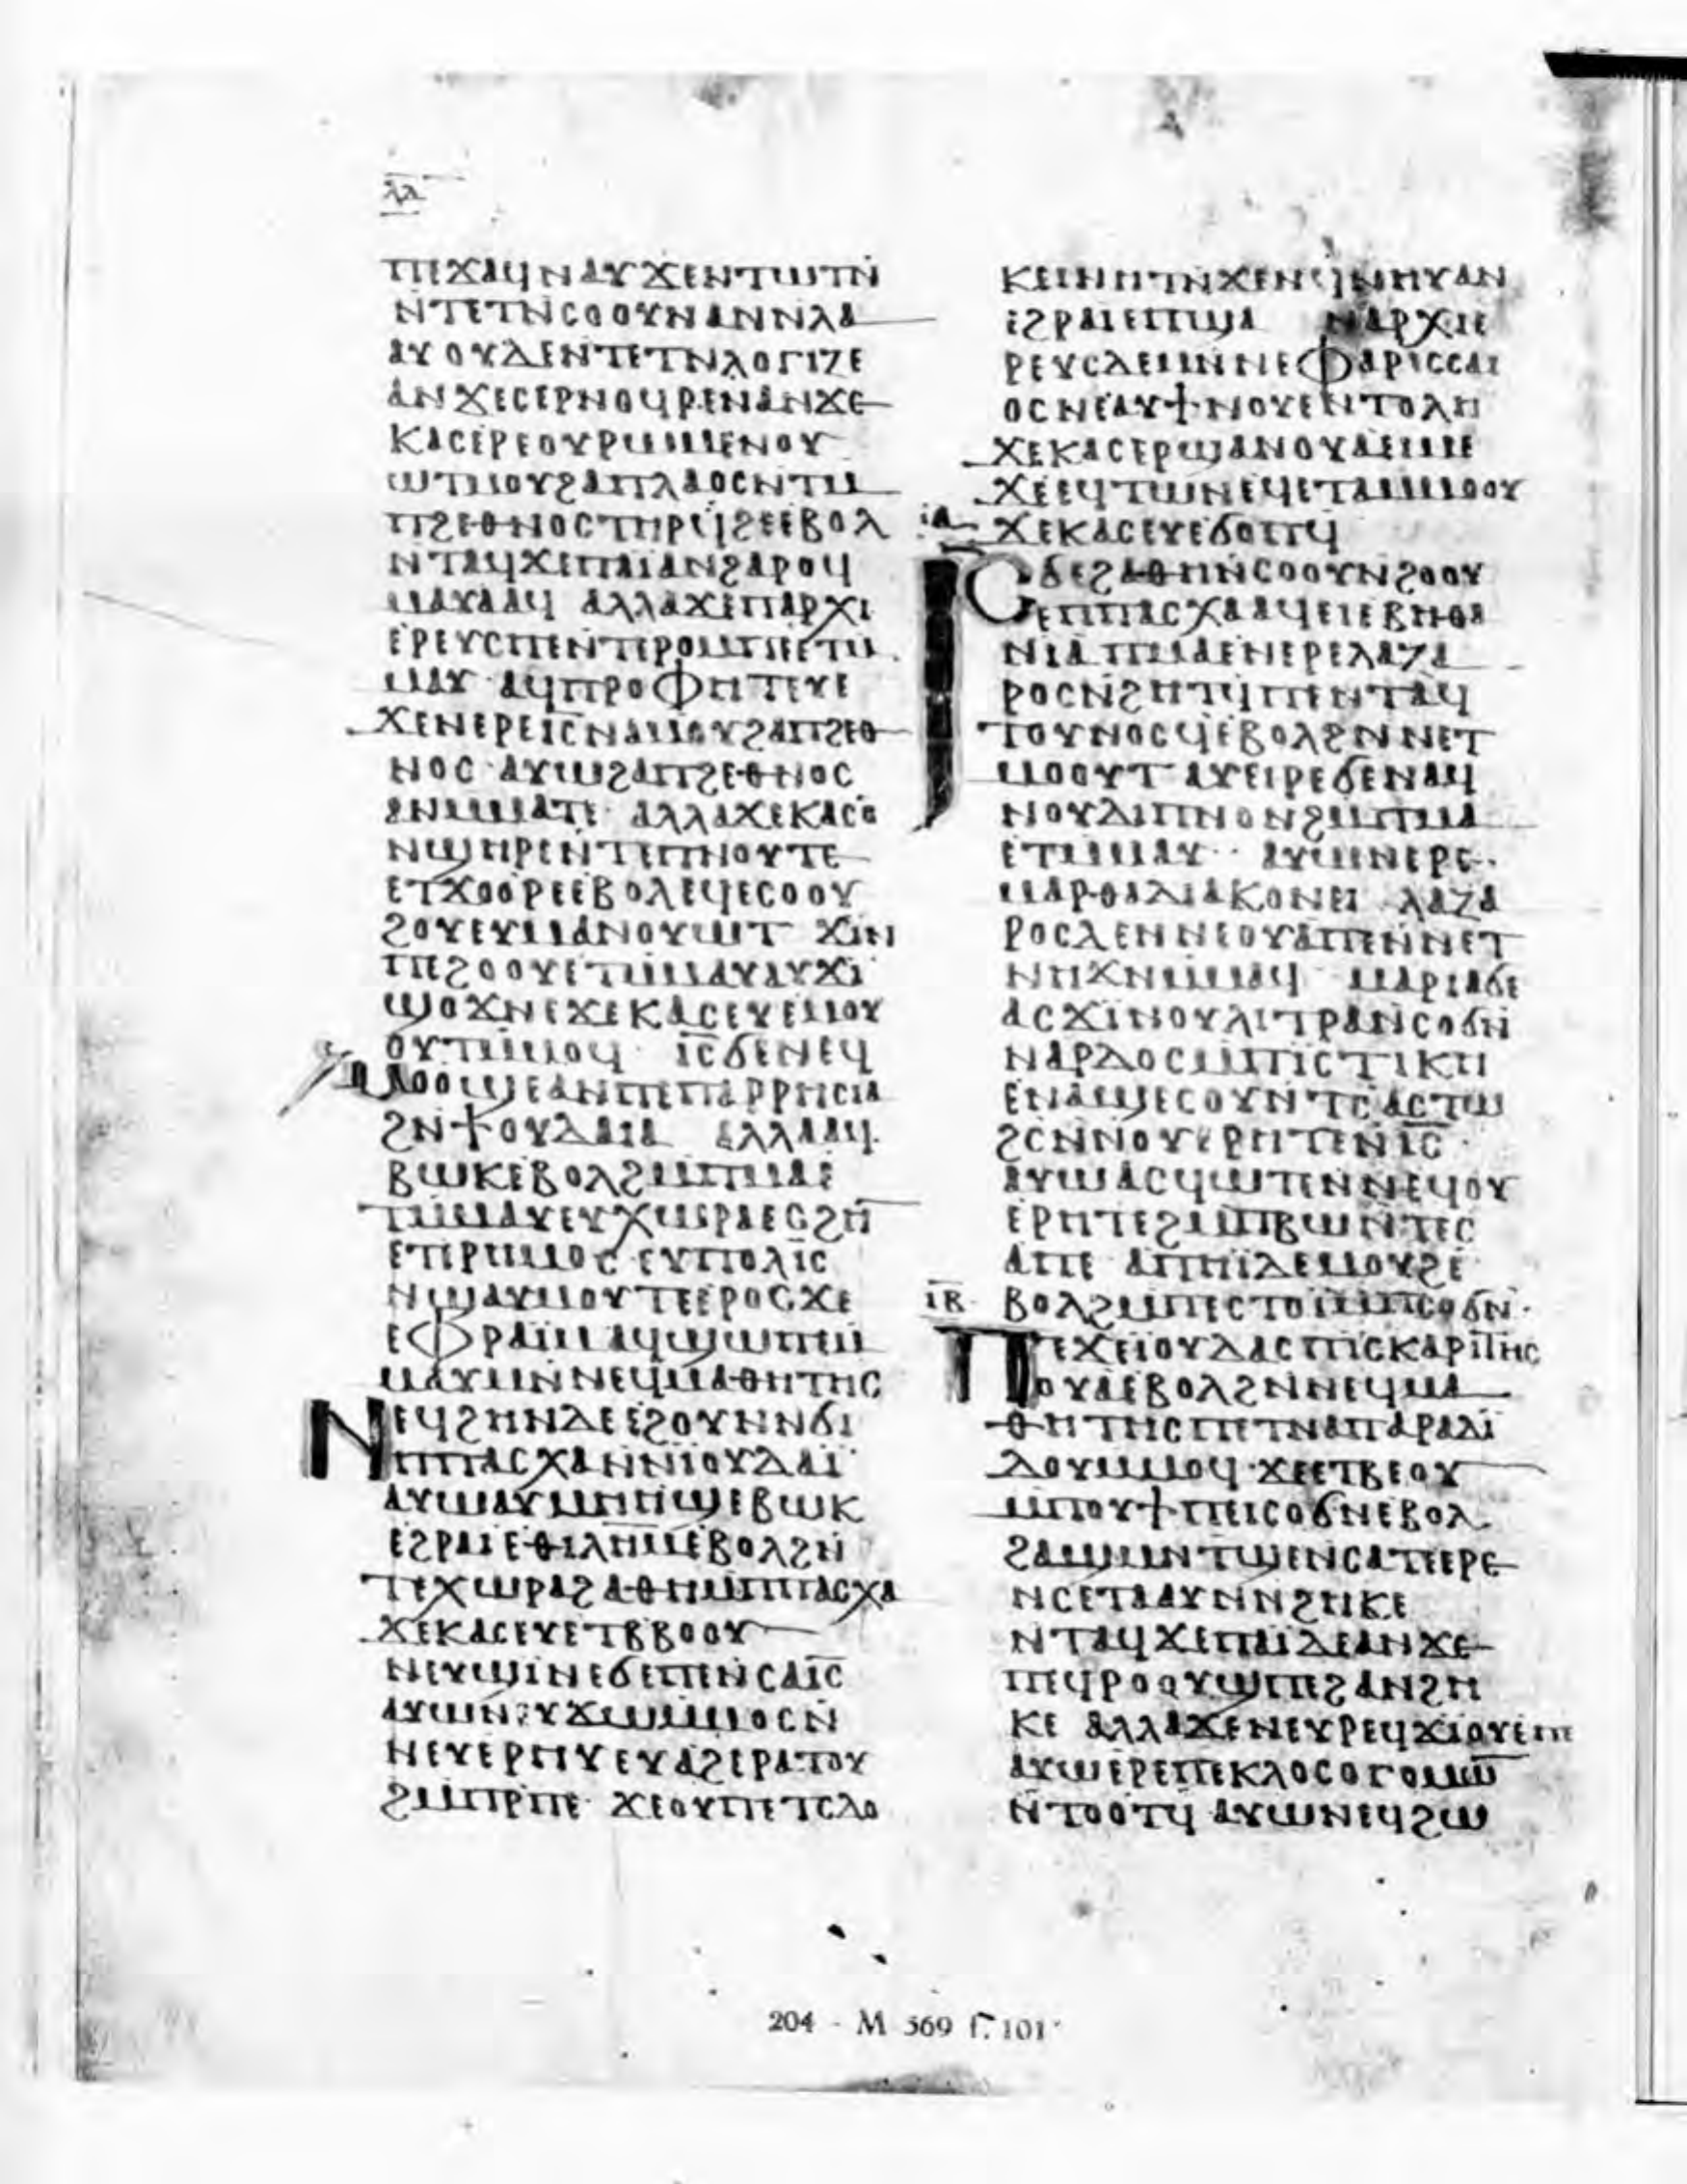 ⲗⲗ
ⲡⲉϫⲁϥⲛⲁⲩϫⲉⲛⲧⲱⲧⲛ̄
ⲛ̄ⲧⲉⲧⲛ̄ⲥⲟⲟⲩⲛⲁⲛⲛ̄ⲗⲁ
ⲁⲩⲟⲩⲇⲉⲛ̄ⲧⲉⲧⲛ̄ⲗⲟⲅⲓⲍⲉ
ⲁⲛϫⲉⲥⲉⲣⲛⲟϥⲣⲉⲛⲁⲛϫⲉ
ⲕⲁⲥⲉⲣⲉⲟⲩⲣⲱⲙⲉⲛⲟⲩ
ⲱⲧⲙⲟⲩϩⲁⲡⲗⲁⲟⲥⲛ̄ⲧⲙ̄
ⲡϩⲉⲑⲛⲟⲥⲧⲏⲣϥ̄ϩⲉⲉⲃⲟⲗ
ⲛ̄ⲧⲁϥϫⲉⲡⲁⲓⲁⲛϩⲁⲣⲟϥ
ⲙⲁⲩⲁⲁϥ ⲁⲗⲗⲁϫⲉⲡⲁⲣⲭⲓ
ⲉⲣⲉⲩⲥⲡⲉⲛⲧⲉⲣⲟⲙⲡⲉⲉⲧⲙ̄
ⲙⲁⲩ ⲁϥⲡⲣⲟⲫⲏⲧⲉⲩⲉ
ϫⲉⲛⲉⲣⲉⲓ̄ⲥ̄ⲛⲁⲙⲟⲩϩⲁⲡϩⲉⲑ
ⲛⲟⲥ ⲁⲩⲱϩⲁⲡϩⲉⲑⲛⲟⲥ
ⲙ̄ⲙⲁⲧⲉ ⲁⲗⲗⲁϫⲉⲕⲁⲥⲉ
ⲛ̄ϣⲏⲣⲉⲛ̄ⲧⲉⲡⲛⲟⲩⲧⲉ
ⲉⲧϫⲟⲟⲣⲉⲉⲃⲟⲗⲉϥⲉⲥⲟⲟⲩ
ϩⲟⲩⲉⲩⲙⲁⲛⲟⲩⲱⲧ ϫⲓⲛ
ⲡⲉϩⲟⲟⲩⲉⲧⲙ̄ⲙⲁⲩⲁⲩϫⲓ
ϣⲟϫⲛⲉϫⲉⲕⲁⲥⲉⲩⲉⲙⲟⲩ
ⲟⲩⲧⲙ̄ⲙⲟϥ ⲓ̄ⲥ̄ϭⲉⲛⲉϥ
ⲙⲟⲟϣⲉⲁⲛⲡⲉⲡⲁⲣⲣⲏⲥⲓⲁ
ϩⲛ̄ϯⲟⲩⲇⲁⲓⲁ ⲁⲗⲗⲁⲁϥ
ⲃⲱⲕⲉⲃⲟⲗϩⲙ̄ⲡⲙⲁⲉ
ⲧⲙ̄ⲙⲁⲩⲉⲩⲭⲱⲣⲁⲉⲥϩⲏ
ⲉⲡⲉⲣⲏⲙⲟⲥ ⲉⲩⲡⲟⲗⲓⲥ
ⲛϣⲁⲩⲙⲟⲩⲧⲉⲉⲣⲟⲥϫⲉ
ⲉⲫⲣⲁⲓⲙ ⲁϥϣⲱⲡⲉⲙ̄
ⲙⲁⲩⲙⲛ̄ⲛⲉϥⲙⲁⲑⲏⲧⲏⲥ
ⲛⲉϥϩⲏⲛⲇⲉⲉϩⲟⲩⲛⲛ̄ϭⲓ
ⲡⲡⲁⲥⲭⲁⲛ̄ⲛⲓⲟⲩⲇⲁⲓ
ⲁⲩⲱⲁⲩⲙⲏⲏϣⲉⲃⲱⲕ
ⲉϩⲣⲁⲓⲉⲑⲓⲗⲏⲙⲉⲃⲟⲗϩⲛ̄
ⲧⲉⲭⲱⲣⲁϩⲁⲑⲏⲙ̄ⲡⲡⲁⲥⲭⲁ
ϫⲉⲕⲁⲥⲉⲩⲉⲧⲃⲃⲟⲟⲩ
ⲛⲉⲩϣⲓⲛⲉϭⲉⲡⲉⲛ̄ⲥⲁⲓ̄ⲥ̄
ⲁⲩⲱⲛⲉⲩϫⲱⲙ̄ⲙⲟⲥⲛ̄
ⲛⲉⲩⲉⲣⲏⲩⲉⲩⲁϩⲉⲣⲁⲧⲟⲩ
ϩⲙ̄ⲡⲣ̄ⲡⲉ ϫⲉⲟⲩⲡⲉⲧⲥⲇⲟ
ⲕⲉⲓⲛⲏⲧⲛ̄ϫⲉⲛϥ̄ⲛⲏⲩⲁⲛ
ⲉϩⲣⲁⲓⲉⲡϣⲁ ⲛⲁⲣⲭⲓⲉ
ⲣⲉⲩⲥⲇⲉⲙⲛ̄ⲛⲉⲫⲁⲣⲓⲥⲥⲁⲓ
ⲟⲥⲛⲉⲁⲩϯⲛⲟⲩⲉⲛⲧⲟⲗⲏ
ϫⲉⲕⲁⲥⲉⲣϣⲁⲛⲟⲩⲁⲉⲓⲙⲉ
ϫⲉⲉϥⲧⲱⲛⲉϥⲉⲧⲁⲙⲙⲟⲟⲩ
ⲓⲁ ϫⲉⲕⲁⲥⲉⲩⲉϭⲟⲡϥ̄
ⲓ̄ⲥ̄ϭⲉϩⲁⲑⲏⲛ̄ⲥⲟⲟⲩⲛ̄ϩⲟⲟⲩ
ⲉⲡⲡⲁⲥⲭⲁⲁϥⲉⲓⲉⲃⲏⲑⲁ
ⲛⲓⲁⲡⲙⲁⲉⲛⲉⲣⲉⲗⲁⲍⲁ
ⲣⲟⲥⲛ̄ϩⲏⲧϥ̄ⲡⲉⲛⲧⲁϥ
ⲧⲟⲩⲛⲟⲥϥⲉⲃⲟⲗϩⲛ̄ⲛⲉⲧ
ⲙⲟⲟⲩⲧ ⲁⲩⲉⲓⲣⲉϭⲉⲛⲁϥ
ⲛⲟⲩⲇⲓⲡⲛⲟⲛϩⲙ̄ⲡⲙⲁ
ⲉⲧⲙ̄ⲙⲁⲩ ⲁⲩⲱⲛⲉⲣⲉ
ⲙⲁⲣⲑⲁⲇⲓⲁⲕⲟⲛⲉⲓ ⲗⲁⲍⲁ
ⲣⲟⲥⲇⲉⲛⲛⲉⲟⲩⲁⲡⲉⲛ̄ⲛⲉⲧ
ⲛⲏϫⲛⲙ̄ⲙⲁϥ ⲙⲁⲣⲓⲁϭⲉ
ⲁⲥϫⲓⲛⲟⲩⲗⲓⲧⲣⲁⲛ̄ⲥⲟϭⲛ̄
ⲛⲁⲣⲇⲟⲥⲙ̄ⲡⲓⲥⲧⲓⲕⲏ
ⲉⲛⲁϣⲉⲥⲟⲩⲛ̄ⲧⲥ̄ⲁⲥⲧⲱ
ϩⲥⲛ̄ⲛⲟⲩⲉⲣⲏⲧⲉⲛ̄ⲓ̄ⲥ̄
ⲁⲩⲱⲁⲥϥⲱⲧⲉⲛ̄ⲛⲉϥⲟⲩ
ⲉⲣⲏⲧⲉϩⲙ̄ⲡⲃⲱⲛ̄ⲧⲉⲥ
ⲁⲡⲉ ⲁⲡⲏⲓⲇⲉⲙⲟⲩϩⲉ
ⲓⲃ ⲃⲟⲗϩⲙ̄ⲡⲉⲥⲧⲟⲓⲙ̄ⲡⲥⲟϭⲛ̄
ⲡⲉϫⲉⲓⲟⲩⲇⲁⲥⲡⲓⲥⲕⲁⲣⲓⲧⲏⲥ
ⲟⲩⲁⲉⲃⲟⲗϩⲛ̄ⲛⲉϥⲙⲁ
ⲑⲏⲧⲏⲥⲡⲉⲧⲛⲁⲡⲁⲣⲁⲇⲓ
ⲇⲟⲩⲙ̄ⲙⲟϥ ϫⲉⲉⲧⲃⲉⲟⲩ
ⲙ̄ⲡⲟⲩϯⲡⲉⲓⲥⲟϭⲛⲉⲃⲟⲗ
ϩⲁϣⲙⲛ̄ⲧϣⲉⲛ̄ⲥⲁⲧⲉⲉⲣⲉ
ⲛ̄ⲥⲉⲧⲁⲁⲩⲛ̄ⲛ̄ϩⲏⲕⲉ
ⲛ̄ⲧⲁϥϫⲉⲡⲁⲓⲇⲉⲁⲛϫⲉ
ⲡⲉϥⲣⲟⲟⲩϣⲡⲉϩⲁⲛϩⲏ
ⲕⲉ ⲁⲗⲗⲁϫⲉⲛⲉⲩⲣⲉϥϫⲓⲟⲩⲉⲡⲉ
ⲁⲩⲱⲉⲣⲉⲡⲉⲕⲗⲟⲥⲟⲅⲟⲙⲱ̄
ⲛ̄ⲧⲟⲟⲧϥ ⲁⲩⲱⲛⲉϥϩⲱ
204 - M 569 f. 101ᵛ